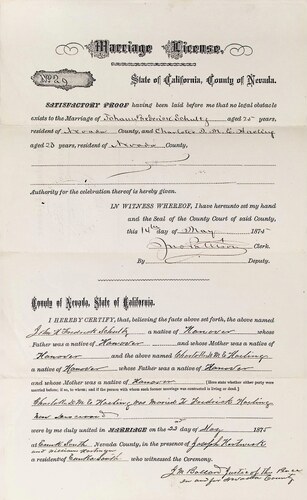 Marriage License.
No 29
State of California, County of Nevada.
SATISFACTORY PROOF having been laid before me that no legal obstacle
exists to the Marriage of Johann Frederick Schultz aged 25 years,
resident of Nevada County, and Charlotte D. M. E. Hasling
aged 23 years, resident of Nevada County,
Authority for the celebration thereof is hereby given.
IN WITNESS WHEREOF, I have hereunto set my hand
and the Seal of the County Court of said County,
this 14th day of May 1875
Clerk.
By Deputy.
County of Nevada, State of California.
I HEREBY CERTIFY, that, believing the facts above set forth, the above named
John Frederick Schultz a native of Hanover whose
Father was a native of Hanover and whose Mother was a native of
Hanover and the above named Charlotte D M E Hasling
a native of Hanover whose Father was a native of Hanover
and whose Mother was a native of Hanover (Here state whether either party were
married before; if so, to whom; and if the person with whom such former marriage was contracted is living or dead.)
Charlotte D M E Hasling was Married to Frederick Hasling
Now
were by me duly united in MARRIAGE on the 23 day of May 1875
at South Nevada County, in the presence of Joseph
and William
a resident of South who witnessed the ceremony.
J M Justice of the Peace
in and for Nevada County